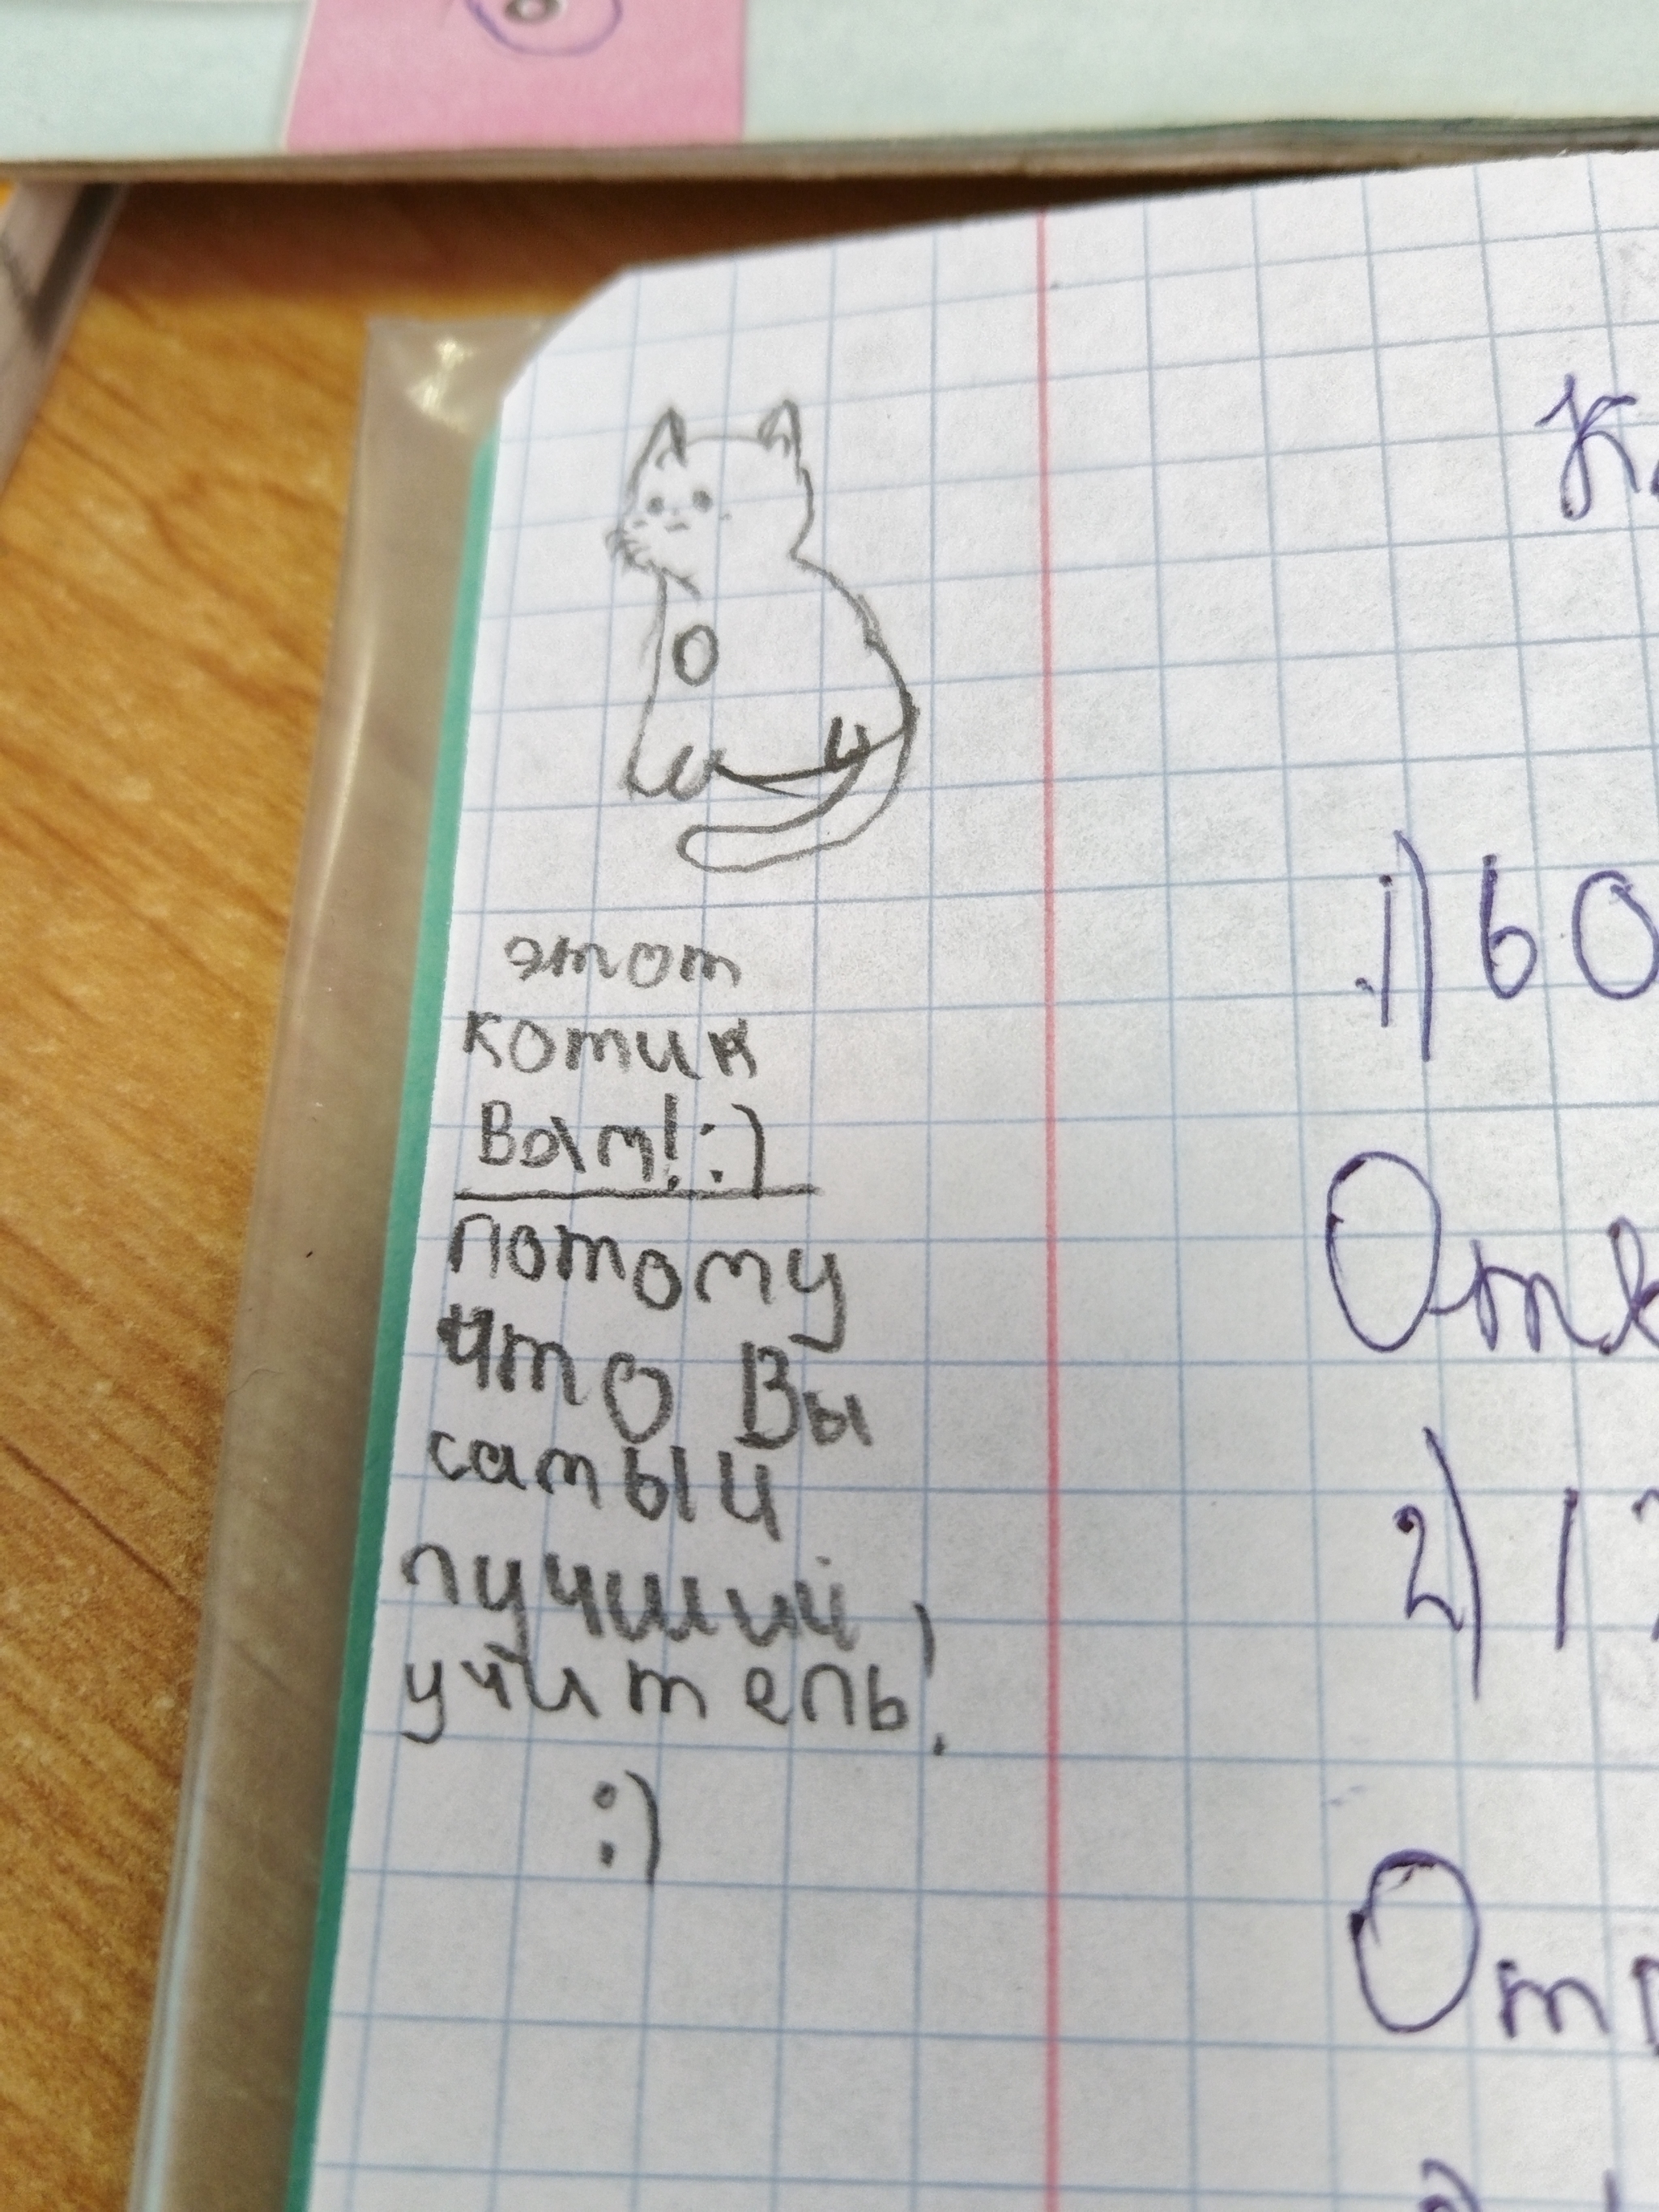 этот
котик
Вам! :)
потому
что Вы
самый
лучший
учитель!
:)
1) 60
2) 1